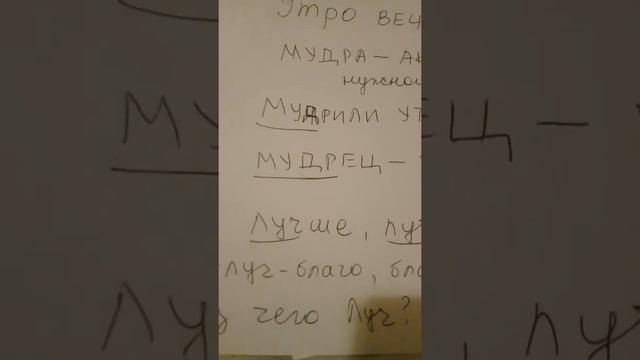 Утро веч
МУДРА — АК
нужной
МУДРИЛИ УТ
МУДРЕЦ —
Лучше, луч
луч-благо, бла
чего Луч?